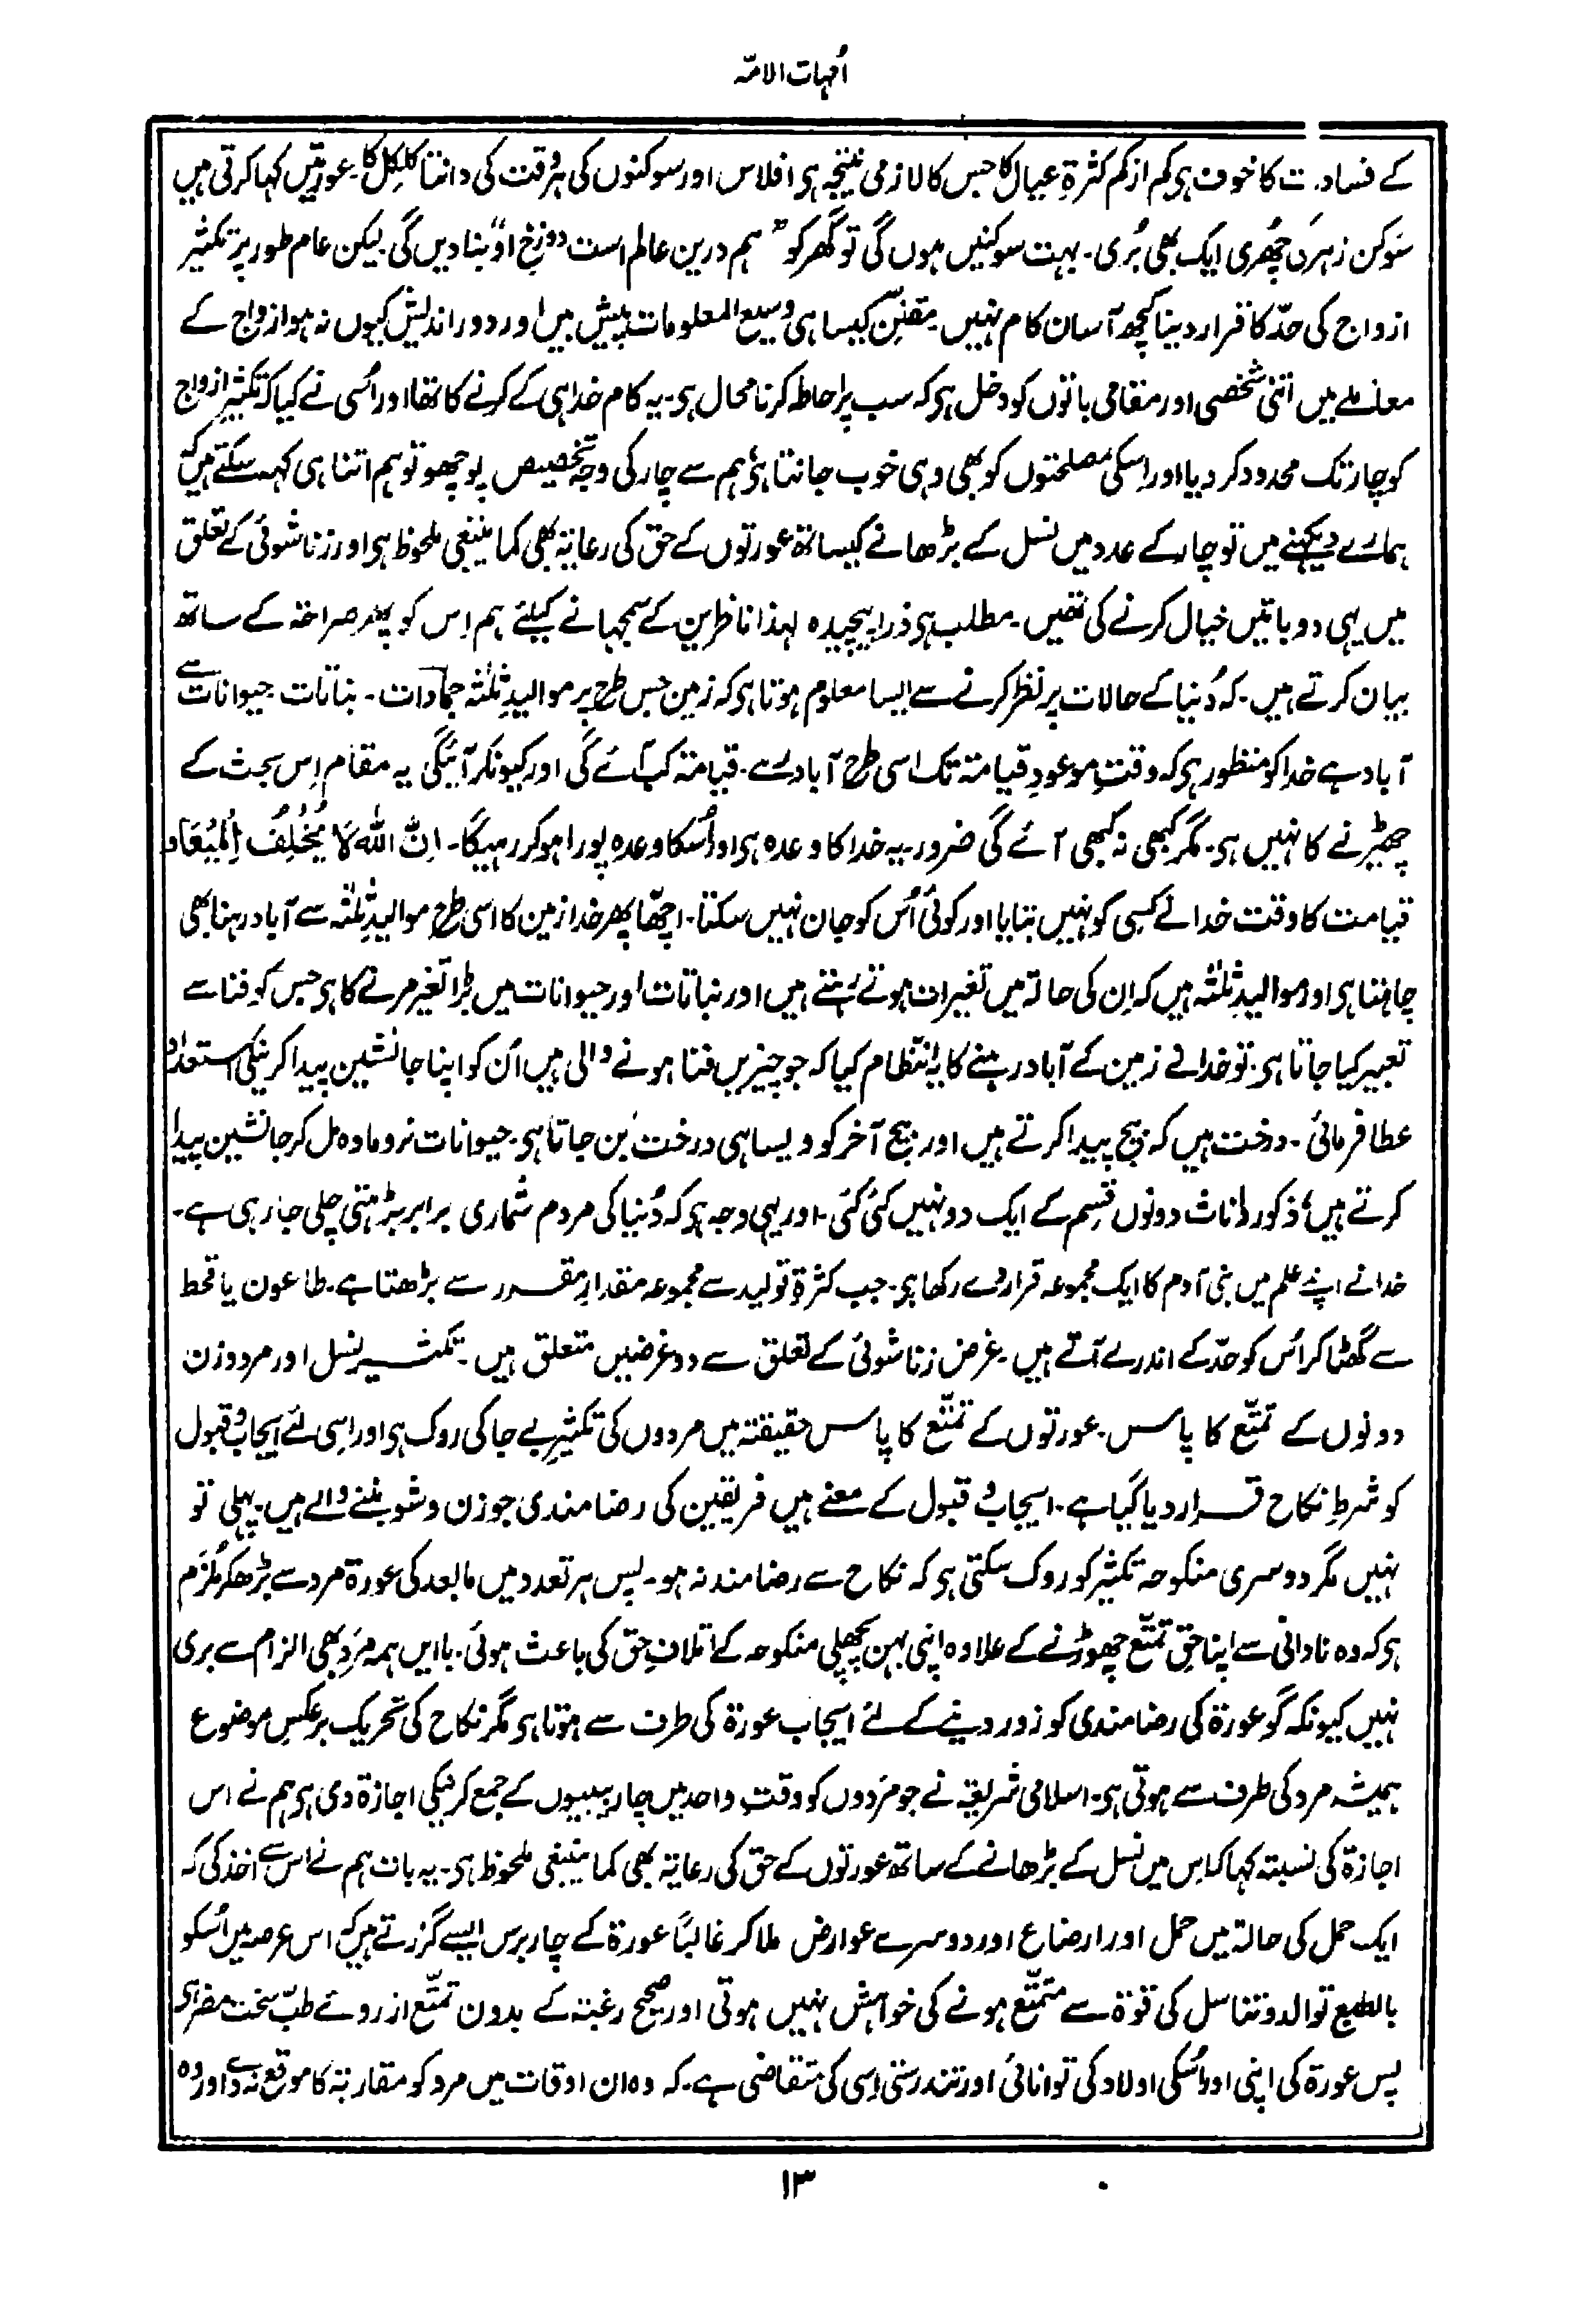 اُمہات الامّہ
کے فساد. ت کا خوف ہی کم از کم کثرۃِ عیال کا جس کا لازمی نتیجہ ہی افلاس اور سوکنوں کی ہر وقت کی دانتا کلکل کا۔ عورتیں کہا کرتی ہیں
سَوکن زہر کی چھُری ایک بھی بُری۔ بہت سوکنیں ہوں گی تو گھر کو "ہم درین عالم است دوزخِ او" بنا دیں گی۔ لیکن عام طور پر تکثیرِ
ازواج کی حدّ کا قرار دینا کچھ آسان کام نہیں۔ مقنّن کیسا ہی وسیع المعلومات پیش بیں اور دور اندیش کیوں نہ ہو ازواج کے
معاملے میں اتنی شخصی اور مقامی باتوں کو دخل ہی کہ سب پر احاطہ کرنا محال ہی۔ یہ کام خدا ہی کے کرنے کا تھا اور اُسی نے کیا کہ تکثیرِ ازواج
کو چار تک محدود کر دیا اور اِسکی مصلحتوں کو بھی وہی خوب جانتا ہی ہم سے چار کی وجہِ تخصیص پوچھو تو ہم اتنا ہی کہہ سکتے ہیں کہ
ہمارے دیکھنے میں تو چار کے عدد میں نسل کے بڑھانے کیساتھ عورتوں کے حق کی رعایۃ بھی کما ینبغی ملحوظ ہی اور زناشوئی کے تعلق
میں یہی دو باتیں خیال کرنے کی تھیں۔ مطلب ہی ذرا پیچیدہ لہذا ناظرین کے سمجہانے کیلئے ہم اِس کو پھر صراحۃ کے ساتھ
بیان کرتے ہیں۔ کہ دُنیا کے حالات پر نظر کرنے سے ایسا معلوم ہوتا ہی کہ زمین جس طرح پر موالیدِ ثلٰثہ جمادات۔ نباتات۔ حیوانات سے
آباد ہے خدا کو منظور ہی کہ وقتِ موعودِ قیامۃ تک اسی طرح آباد رہے۔ قیامۃ کب آئے گی اور کیونکر آئیگی یہ مقام اِس بحث کے
چھیڑنے کا نہیں ہی۔ مگر کبھی نہ کبھی آئے گی ضرور۔ یہ خدا کا وعدہ ہی اور اُسکا وعدہ پورا ہو کر رہیگا۔ اِنَّ اللّٰہَ لَا یُخْلِفُ الْمِیْعَاد
قیامت کا وقت خدا نے کسی کو نہیں بتایا اور کوئی اُس کو جان نہیں سکتا۔ اچھا پھر خدا زمین کا اسی طرح موالیدِ ثلٰثہ سے آباد رہنا بھی
چاہتا ہی اور موالیدِ ثلٰثہ ہیں کہ اِن کی حالۃ میں تغیرات ہوتے رہتے ہیں اور نباتات اور حیوانات میں بڑا تغیر مرنے کا ہی جس کو فنا سے
تعبیر کیا جاتا ہی۔ تو خدا نے زمین کے آباد رہنے کا یہ انتظام کیا کہ جو چیزیں فنا ہونے والی ہیں اُن کو اپنا جانشین پیدا کرنیکی استعداد
عطا فرمائی۔ درخت ہیں کہ بیج پیدا کرتے ہیں اور بیج آخر کو ویسا ہی درخت بَن جاتا ہی۔ حیوانات نر و مادہ مل کر جانشین پیدا
کرتے ہیں، ذکور و اناث دونوں قِسم کے ایک دو نہیں کئی کئی۔ اور یہی وجہ ہی کہ دُنیا کی مردم شماری برابر بڑہتی چلی جا رہی ہے۔
خدا نے اپنے علم میں بنی آدم کا ایک مجموعہ قرار دے رکھا ہی۔ جب کثرۃِ تولید سے مجموعہ مقدارِ مقرر سے بڑھتا ہے۔ طاعون یا قحط
سے گھٹا کر اُس کو حدّ کے اندر لے آتے ہیں۔ غرض زناشوئی کے تعلق سے دو غرضیں متعلق ہیں۔ تکثیرِ نسل اور مرد و زن
دونوں کے تمتّع کا پاس۔ عورتوں کے تمتّع کا پاس حقیقۃ میں مردوں کی تکثیرِ بے جا کی روک ہی اور اِسی لئے ایجاب و قبول
کو شرطِ نکاح قرار دیا گیا ہے۔ ایجاب و قبول کے معنے ہیں فریقین کی رضامندی جو زن و شو بننے والے ہیں۔ پہلی تو
نہیں مگر دوسری منکوحہ تکثیر کو روک سکتی ہی کہ نکاح سے رضامند نہ ہو۔ پس ہر تعدد میں مابعد کی عورۃ مرد سے بڑھکر مُلزَم
ہی کہ وہ نادانی سے اپنا حقِ تمتّع چھوڑنے کے علاوہ اپنی بہن پچھلی منکوحہ کے اتلافِ حق کی باعث ہوئی۔ بااین ہمہ مَرد بھی الزام سے بری
نہیں کیونکہ گو عورۃ کی رضامندی کو زور دینے کے لئے ایجاب عورۃ کی طرف سے ہوتا ہی مگر نکاح کی تحریک برعکسِ موضوع
ہمیشہ مرد کی طرف سے ہوتی ہی۔ اسلامی شریعۃ نے جو مَردوں کو وقتِ واحد میں چار بیبیوں کے جمع کرنیکی اجازۃ دی ہی ہم نے اس
اجازۃ کی نسبتہ کہا کہ اِس میں نسل کے بڑھانے کے ساتھ عورتوں کے حق کی رعایۃ بھی کما ینبغی ملحوظ ہی۔ یہ بات ہم نے اس سے اخذ کی کہ
ایک حمل کی حالۃ میں حمل اور ارضاع اور دوسرے عوارض ملا کر غالباً عورۃ کے چار برس ایسے گزرتے ہیں کہ اس عرصہ میں اُسکو
بالطبع توالد و تناسل کی قوۃ سے متمتّع ہونے کی خواہش نہیں ہوتی اور صحیح رغبۃ کے بدون تمتّع از روئے طبّ سخت مضر ہی
پس عورۃ کی اپنی اور اُسکی اولاد کی توانائی اور تندرستی اِسی کی متقاضی ہے۔ کہ وہ ان اوقات میں مرد کو مقاربۃ کا موقع نہ دے اور وہ
۱۳